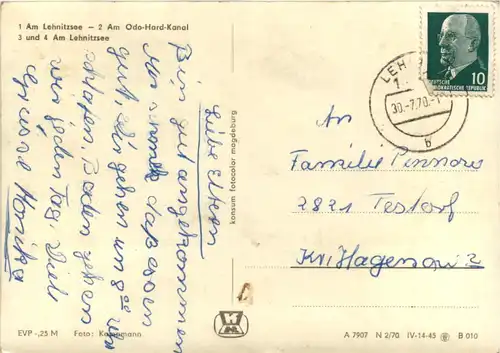 1 Am Lehnitzsee – 2 Am Odo-Hard-Kanal
3 und 4 Am Lehnitzsee
Liebe Eltern
Bin gut angekommen
das Essen
gut. Wir gehen um 9 00 Uhr
schlafen. Baden gehen
wir jeden Tag. Viele
Grüsse Monika
EVP -,25 M Foto: Kampmann
konsum fotocolor magdeburg
LEH
30.-7.70.-1
b
10
DEUTSCHE
DEMOKRATISCHE REPUBLIK
An
Familie
2821 Testorf
Kr. Hagenow 2
A 7907 N 2/70 IV-14-45 B 010